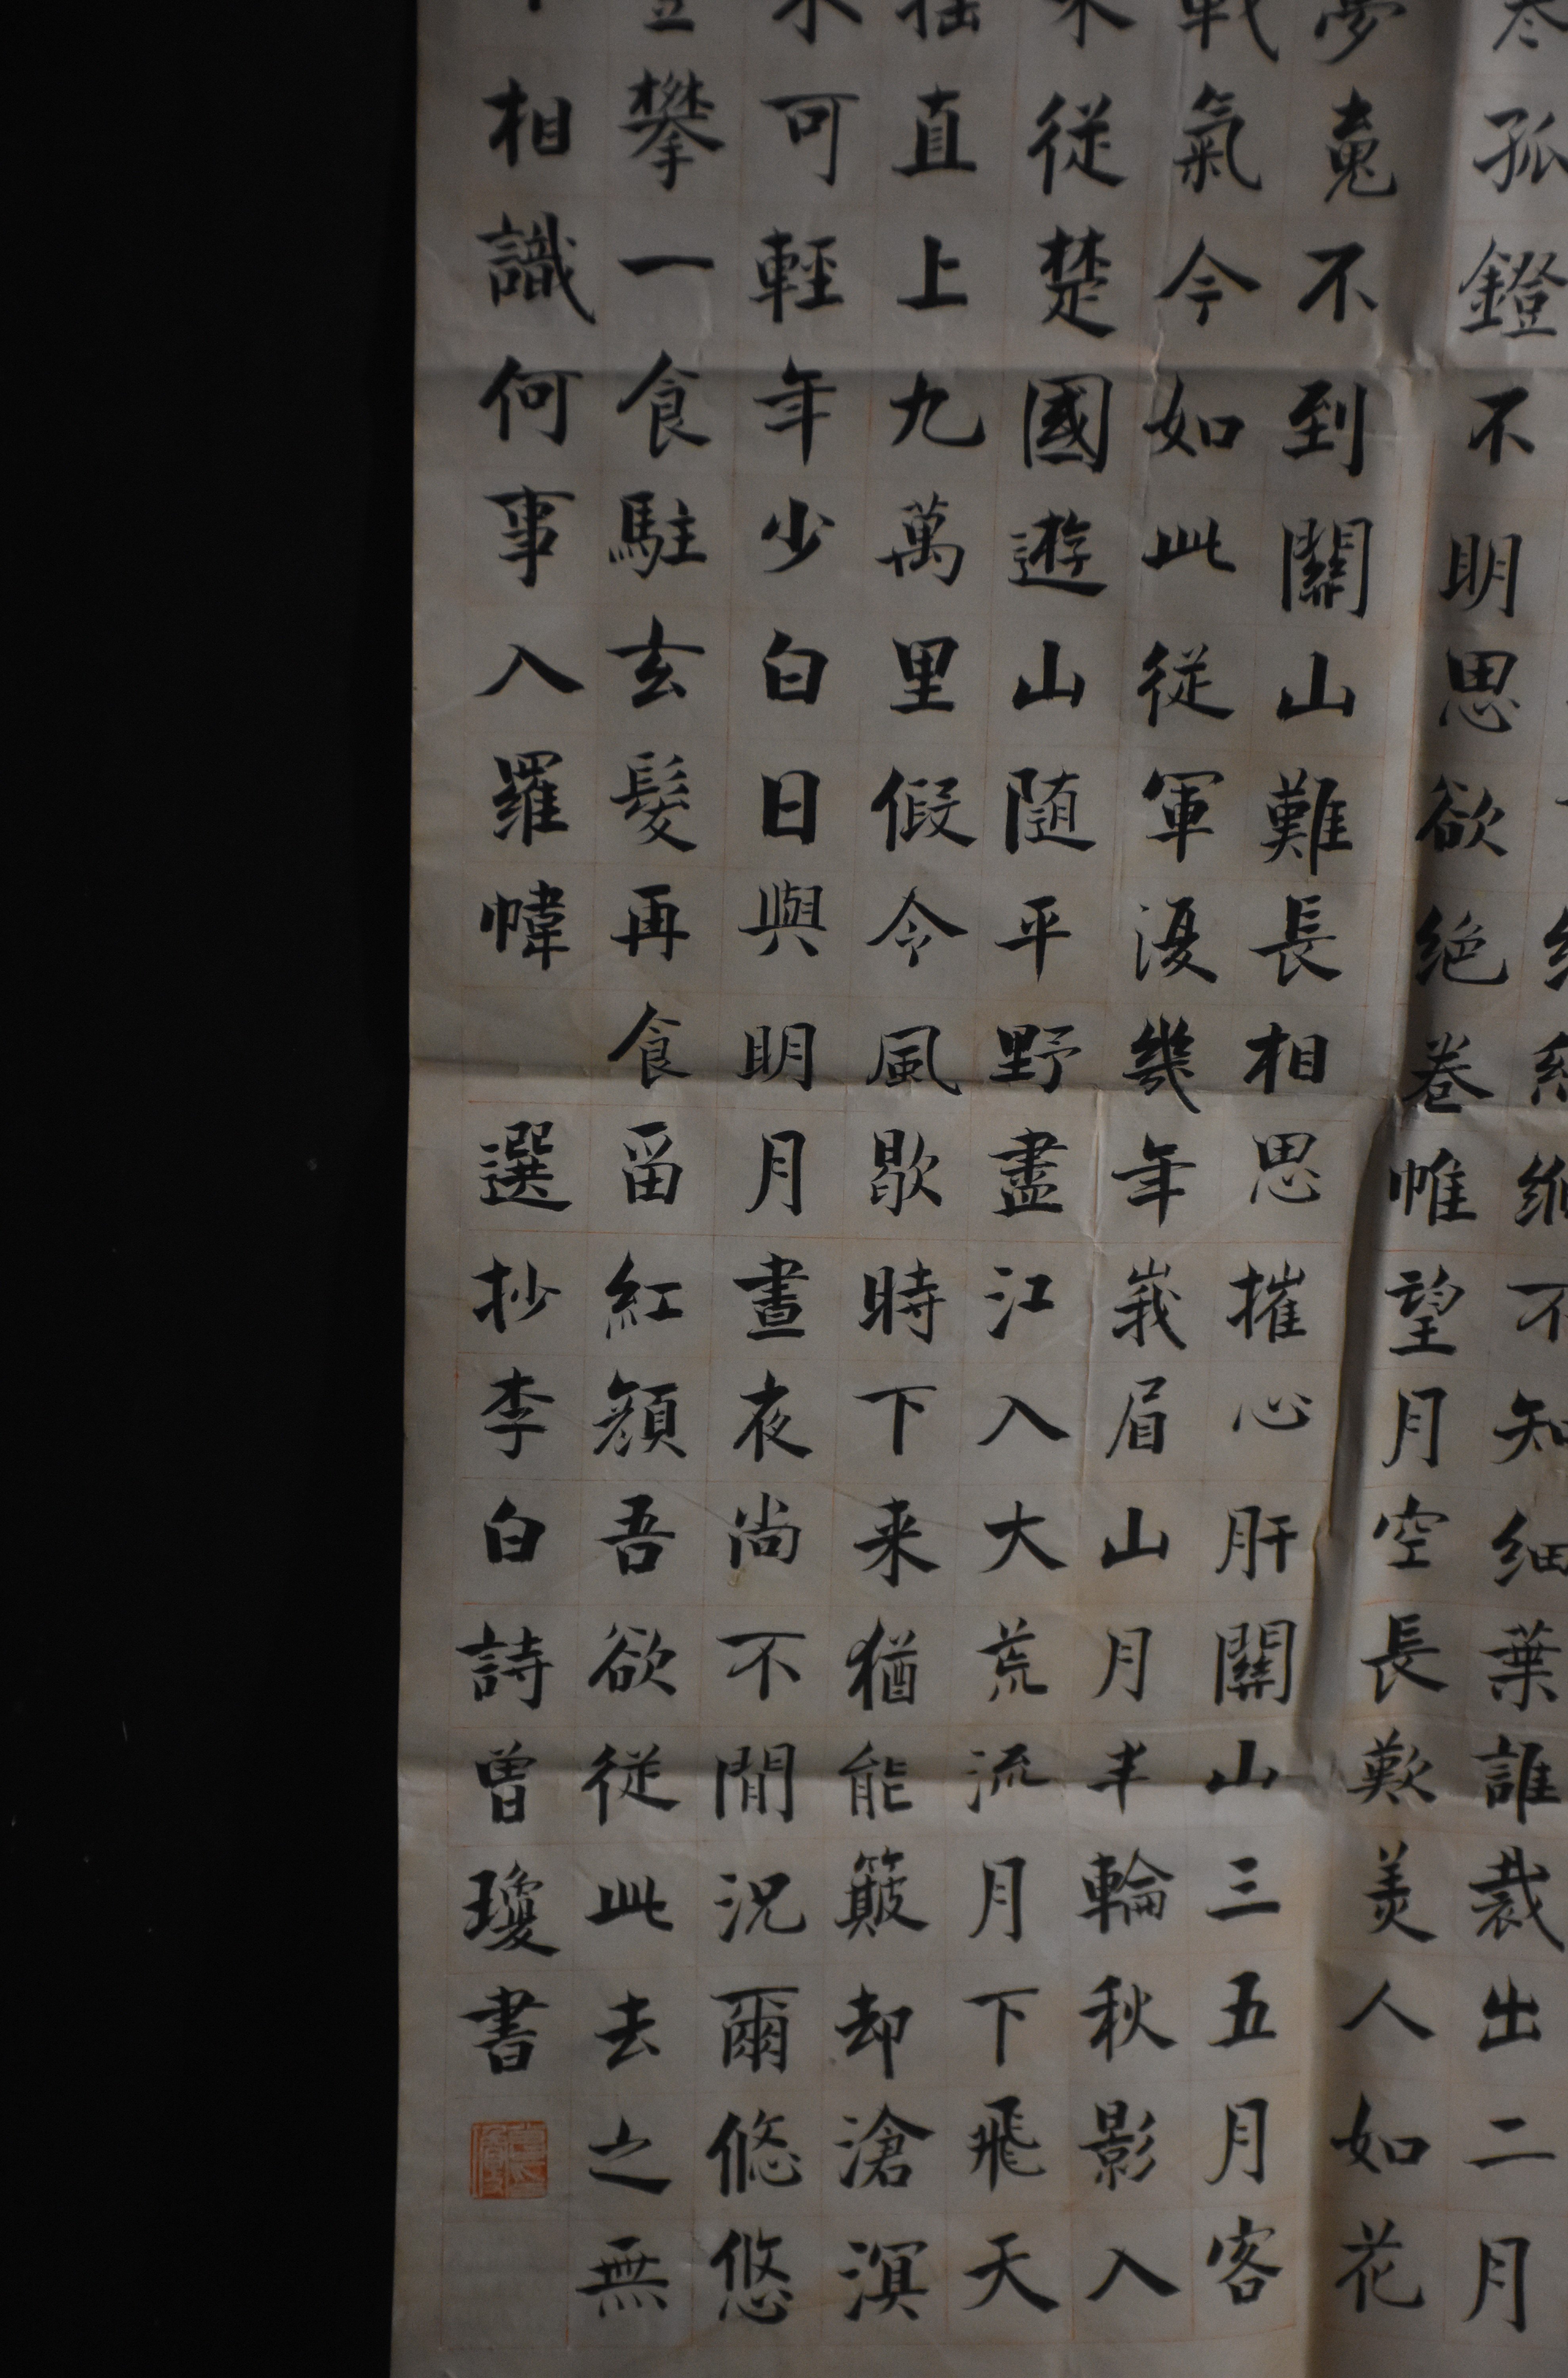 知細葉誰裁出二月
孤鐙不明思欲絶卷帷望月空長歎美人如花
夢䰟不到關山難長相思摧心肝關山三五月客
戰氣今如此從軍復幾年峩眉山月半輪秋影入
来從楚國遊山随平野盡江入大荒流月下飛天
搖直上九萬里假令風歇時下来猶能簸却滄溟
不可輕年少白日與明月晝夜尚不閒況爾悠悠
登攀一食駐玄髮再食留紅顔吾欲從此去之無
相識何事入羅幃
選抄李白詩曾瓊書